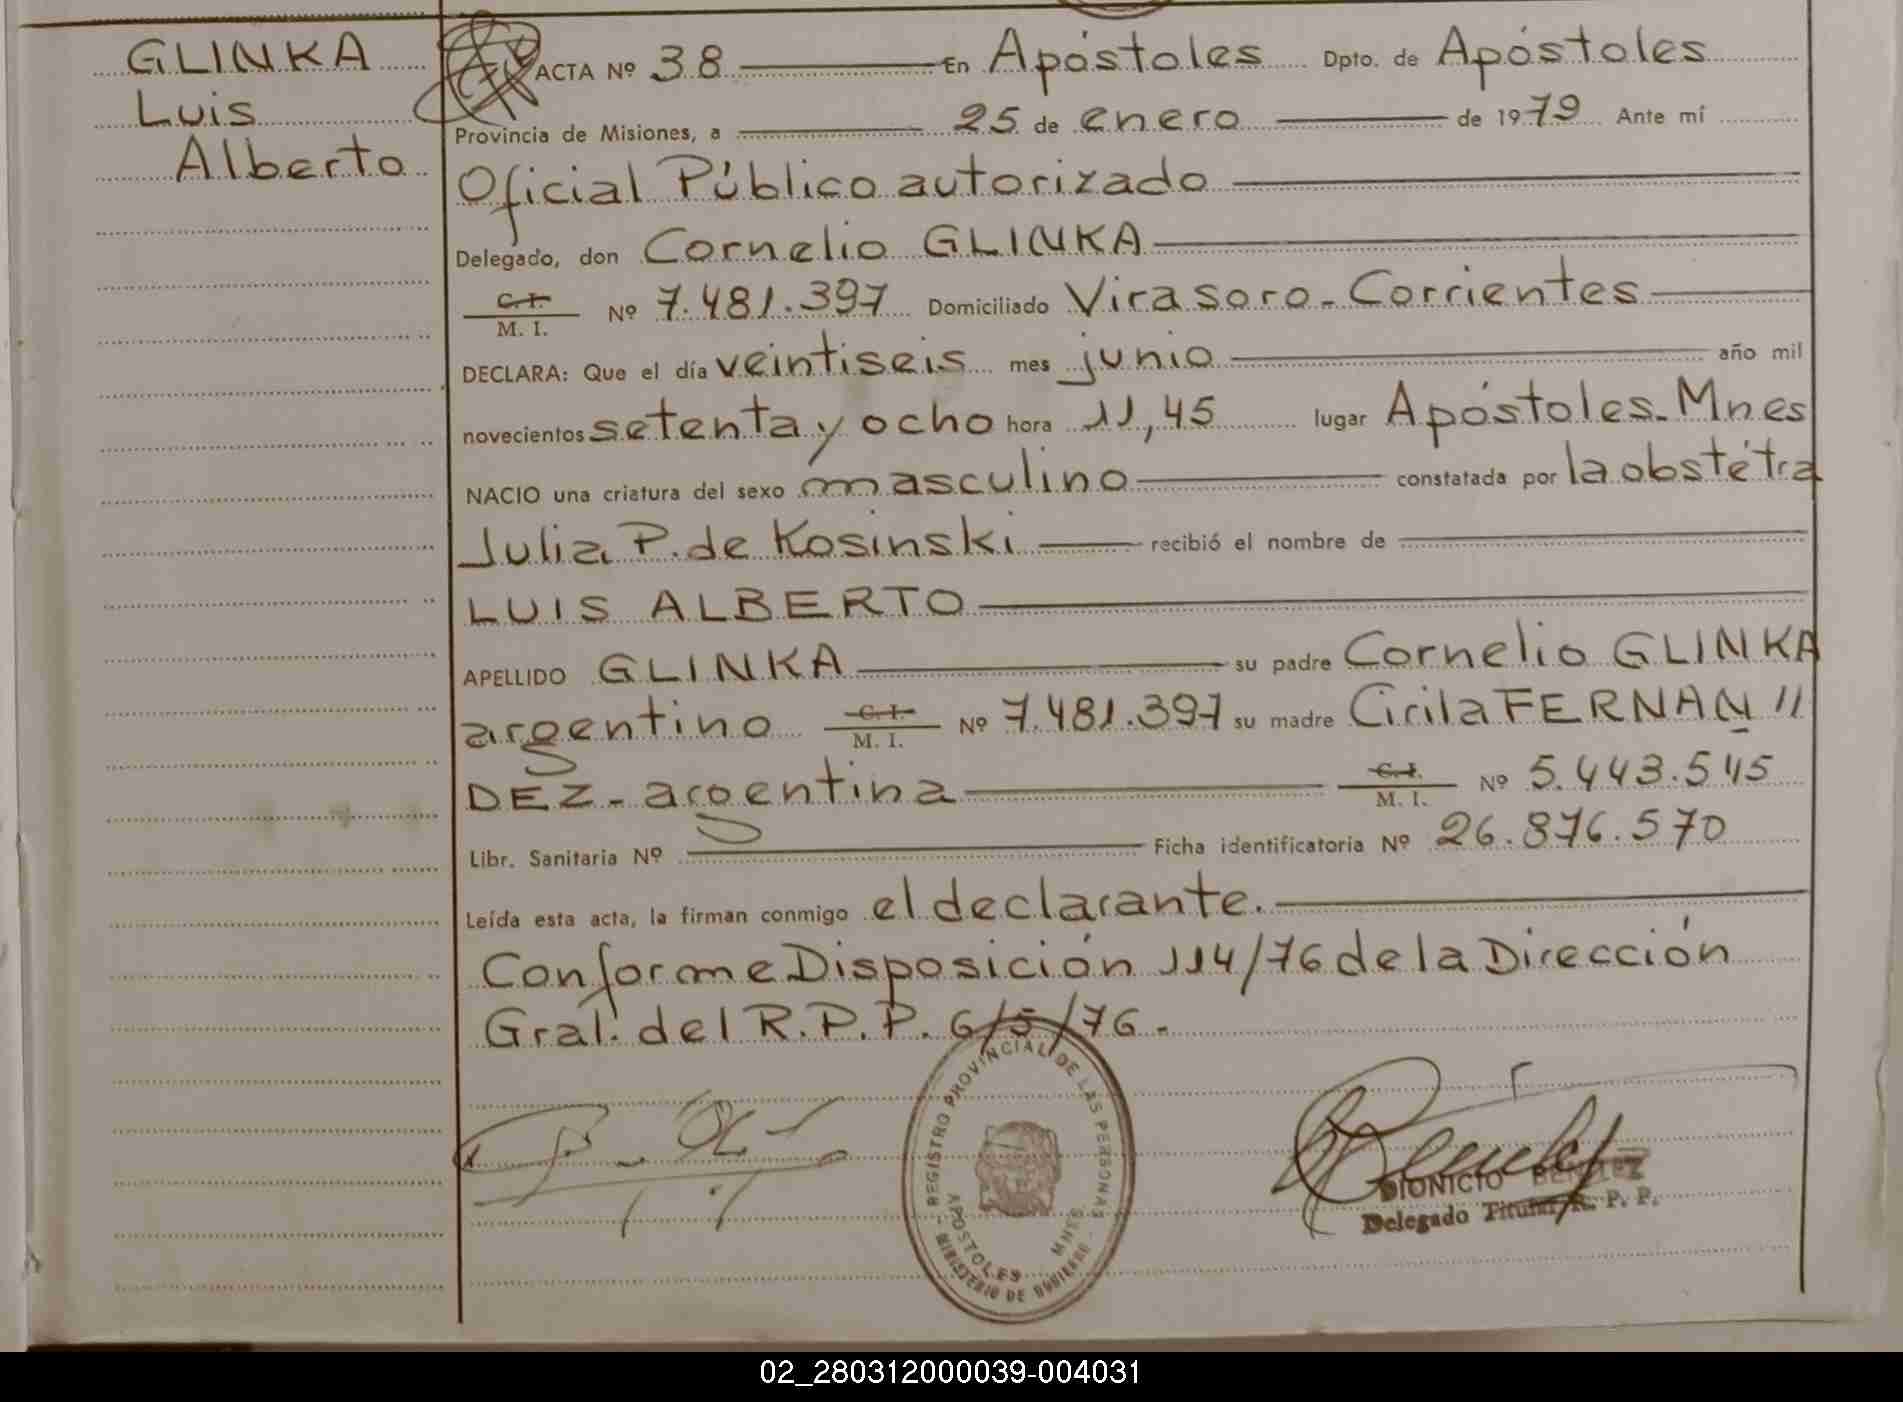 GLINKA
Luis
Alberto
ACTA Nº 38 En Apóstoles Dpto. de Apóstoles
Provincia de Misiones, a 25 de enero de 1979 Ante mí
Oficial Público autorizado
Delegado, don Cornelio GLINKA
C. I.
M. I. Nº 7.481.397 Domiciliado Virasoro - Corrientes
DECLARA: Que el día veintiseis mes junio año mil
novecientos setenta y ocho hora 11,45 lugar Apóstoles - Mnes
NACIO una criatura del sexo masculino constatada por la obstétra
Julia P. de Kosinski recibió el nombre de
LUIS ALBERTO
APELLIDO GLINKA su padre Cornelio GLINKA
argentino C. I. M. I. Nº 7.481.397 su madre Cirila FERNAN //
DEZ - argentina C. I. M. I. Nº 5.443.545
Libr. Sanitaria Nº Ficha identificatoria Nº 26.876.570
Leída esta acta, la firman conmigo el declarante.
Conforme Disposición 114/76 de la Dirección
Gral. del R.P.P. 6/5/76 -
REGISTRO PROVINCIAL DE LAS PERSONAS
APOSTOLES MNES
MINISTERIO DE GOBIERNO
DIONICIO
Delegado Titular R. P. P.
02_280312000039-004031